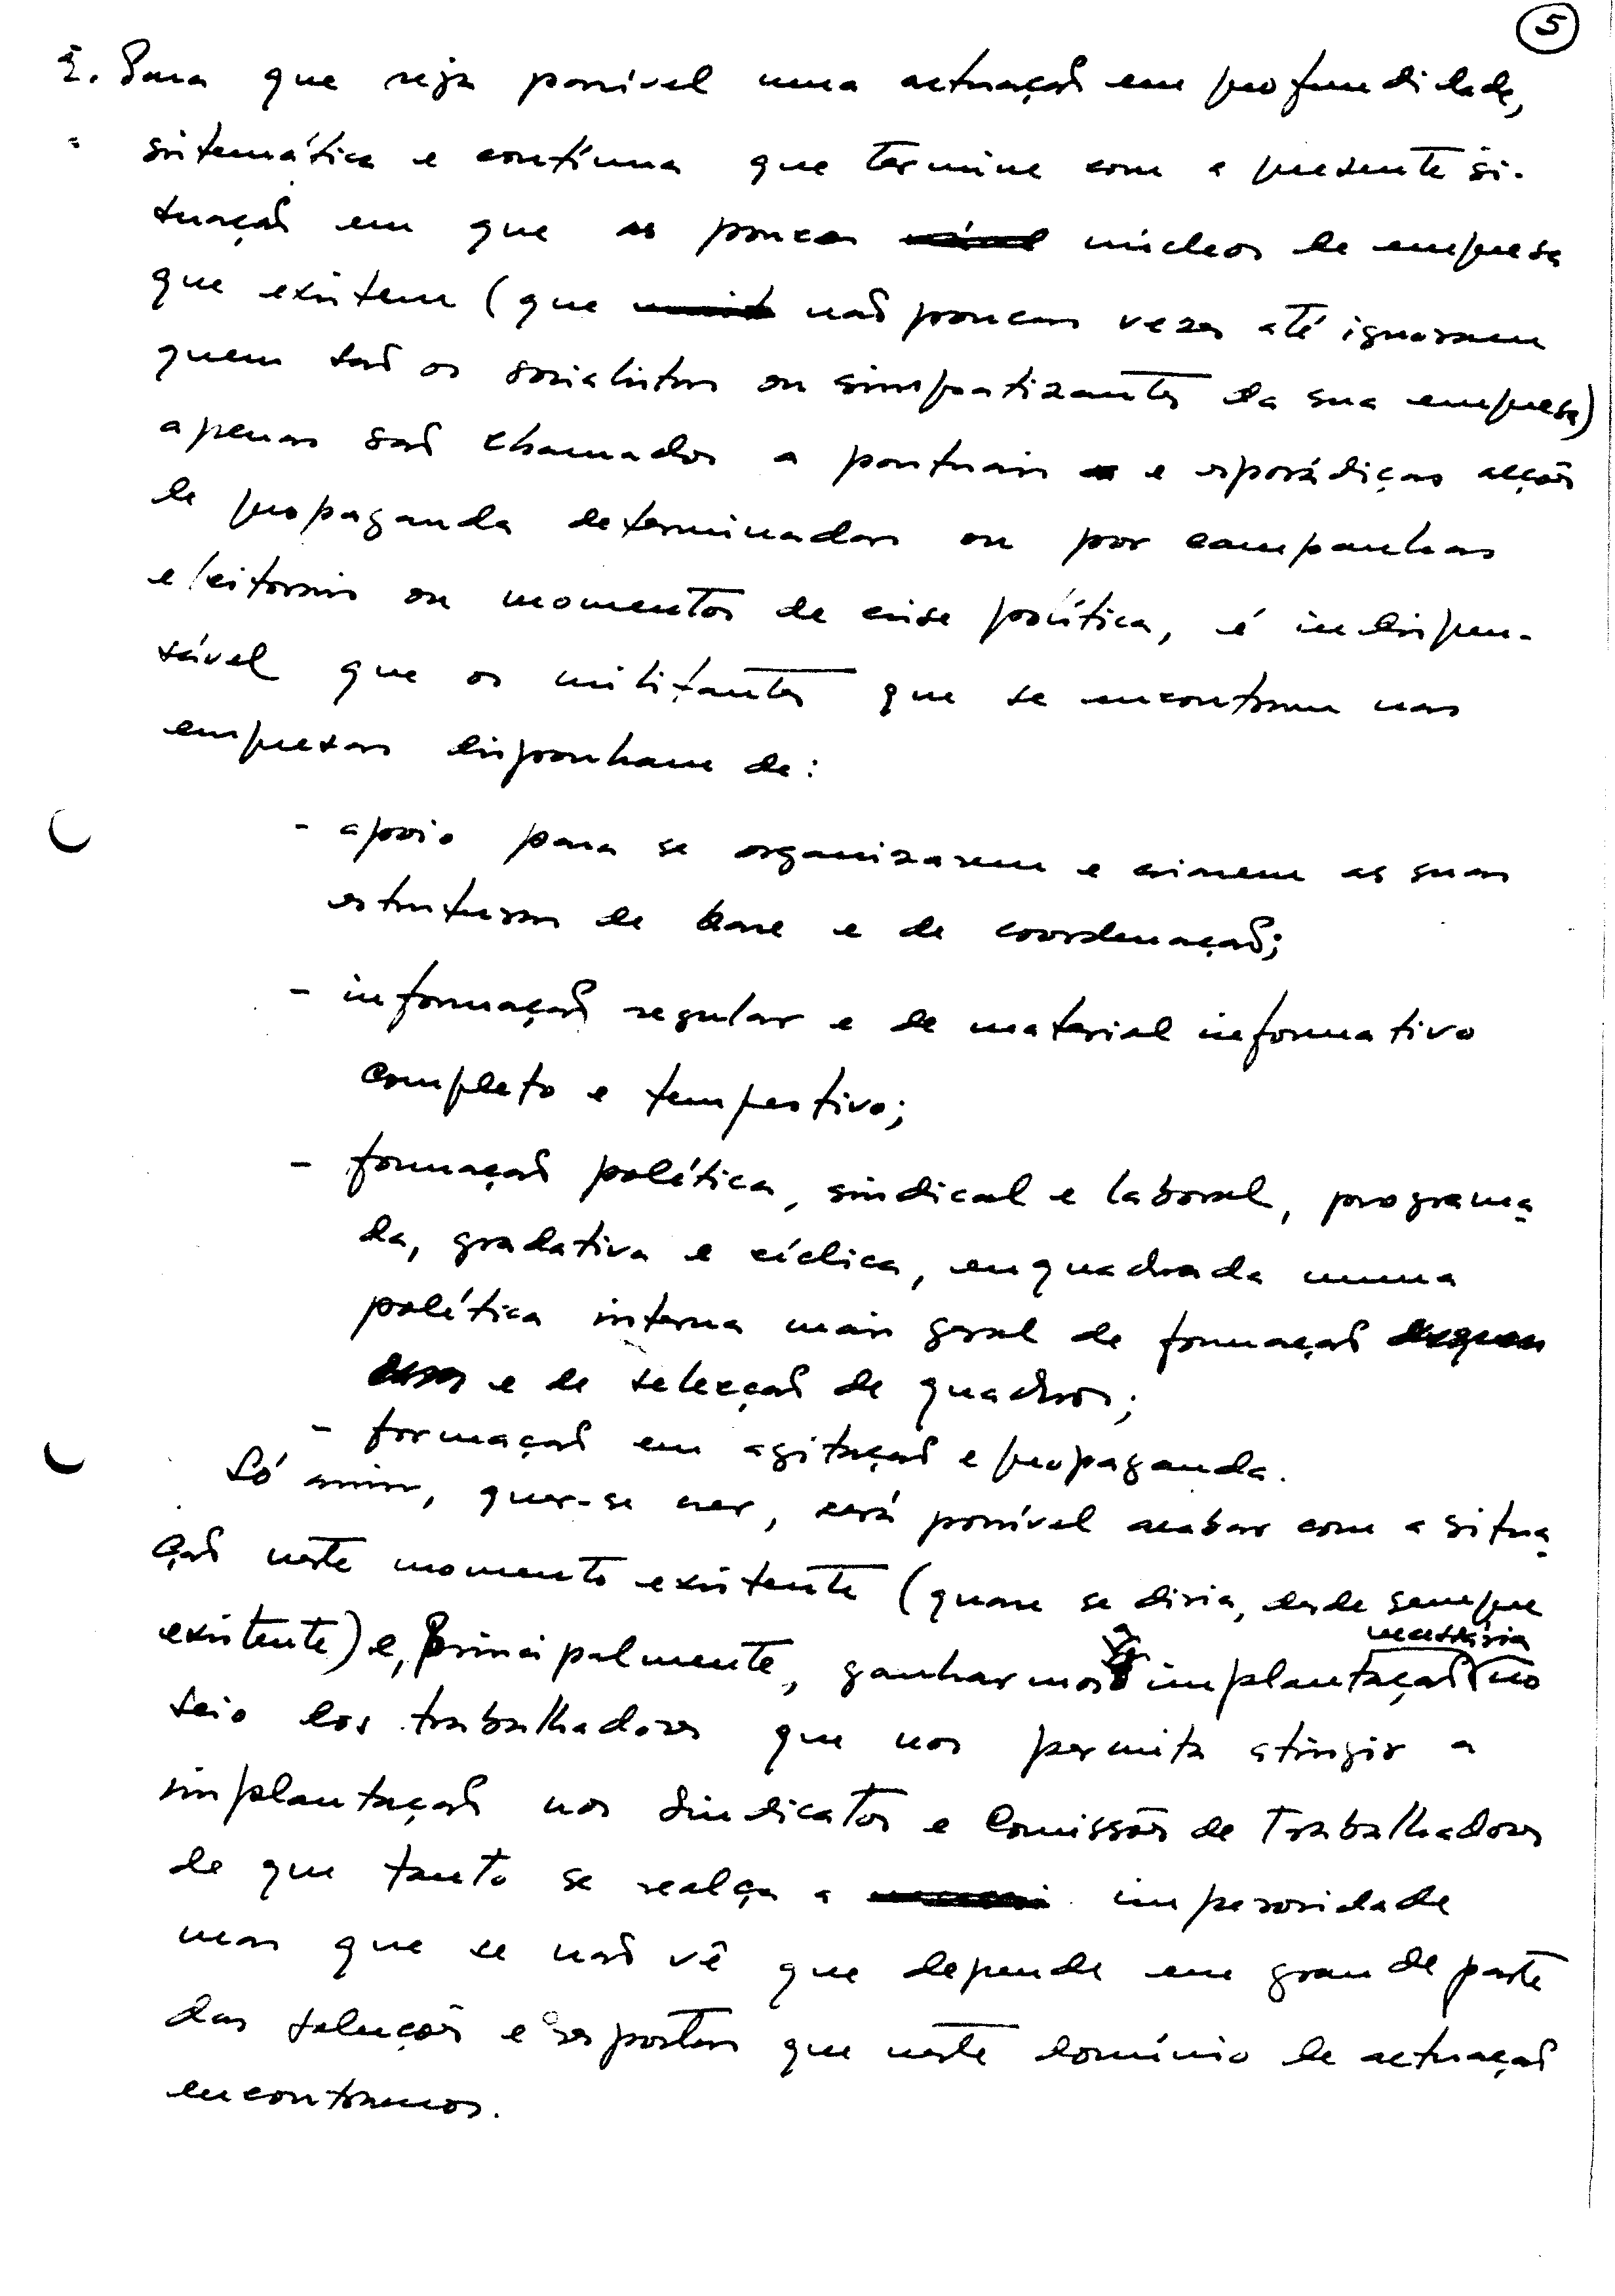 5
2. Para que seja possível uma actuação em profundidade,
sistemática e contínua que termine com a presente si-
tuação em que os poucos núcleos de empresa
que existem (que não poucas vezes até ignoram
quem são os socialistas ou simpatizantes da sua empresa)
apenas são chamados a pontuais e esporádicas acções
de propaganda determinadas ou por campanhas
eleitorais ou momentos de crise política, é indispen-
sável que os militantes que se encontram nas
empresas disponham de:
- apoio para se organizarem e criarem as suas
estruturas de base e de coordenação;
- informação regular e de material informativo
completo e tempestivo;
- formação política, sindical e laboral, programa-
da, gradativa e cíclica, enquadrada numa
política interna mais geral de formação
e de selecção de quadros;
- formação em agitação e propaganda.
Só assim, quer-se crer, será possível acabar com a situa-
ção neste momento existente (quase se diria, desde sempre
existente) e, principalmente, ganharmos a implantação necessária no
seio dos trabalhadores que nos permita atingir a
implantação nos Sindicatos e Comissões de Trabalhadores
de que tanto se realça a imperiosidade
mas que se não vê que depende em grande parte
das soluções e respostas que neste domínio de actuação
encontrarmos.